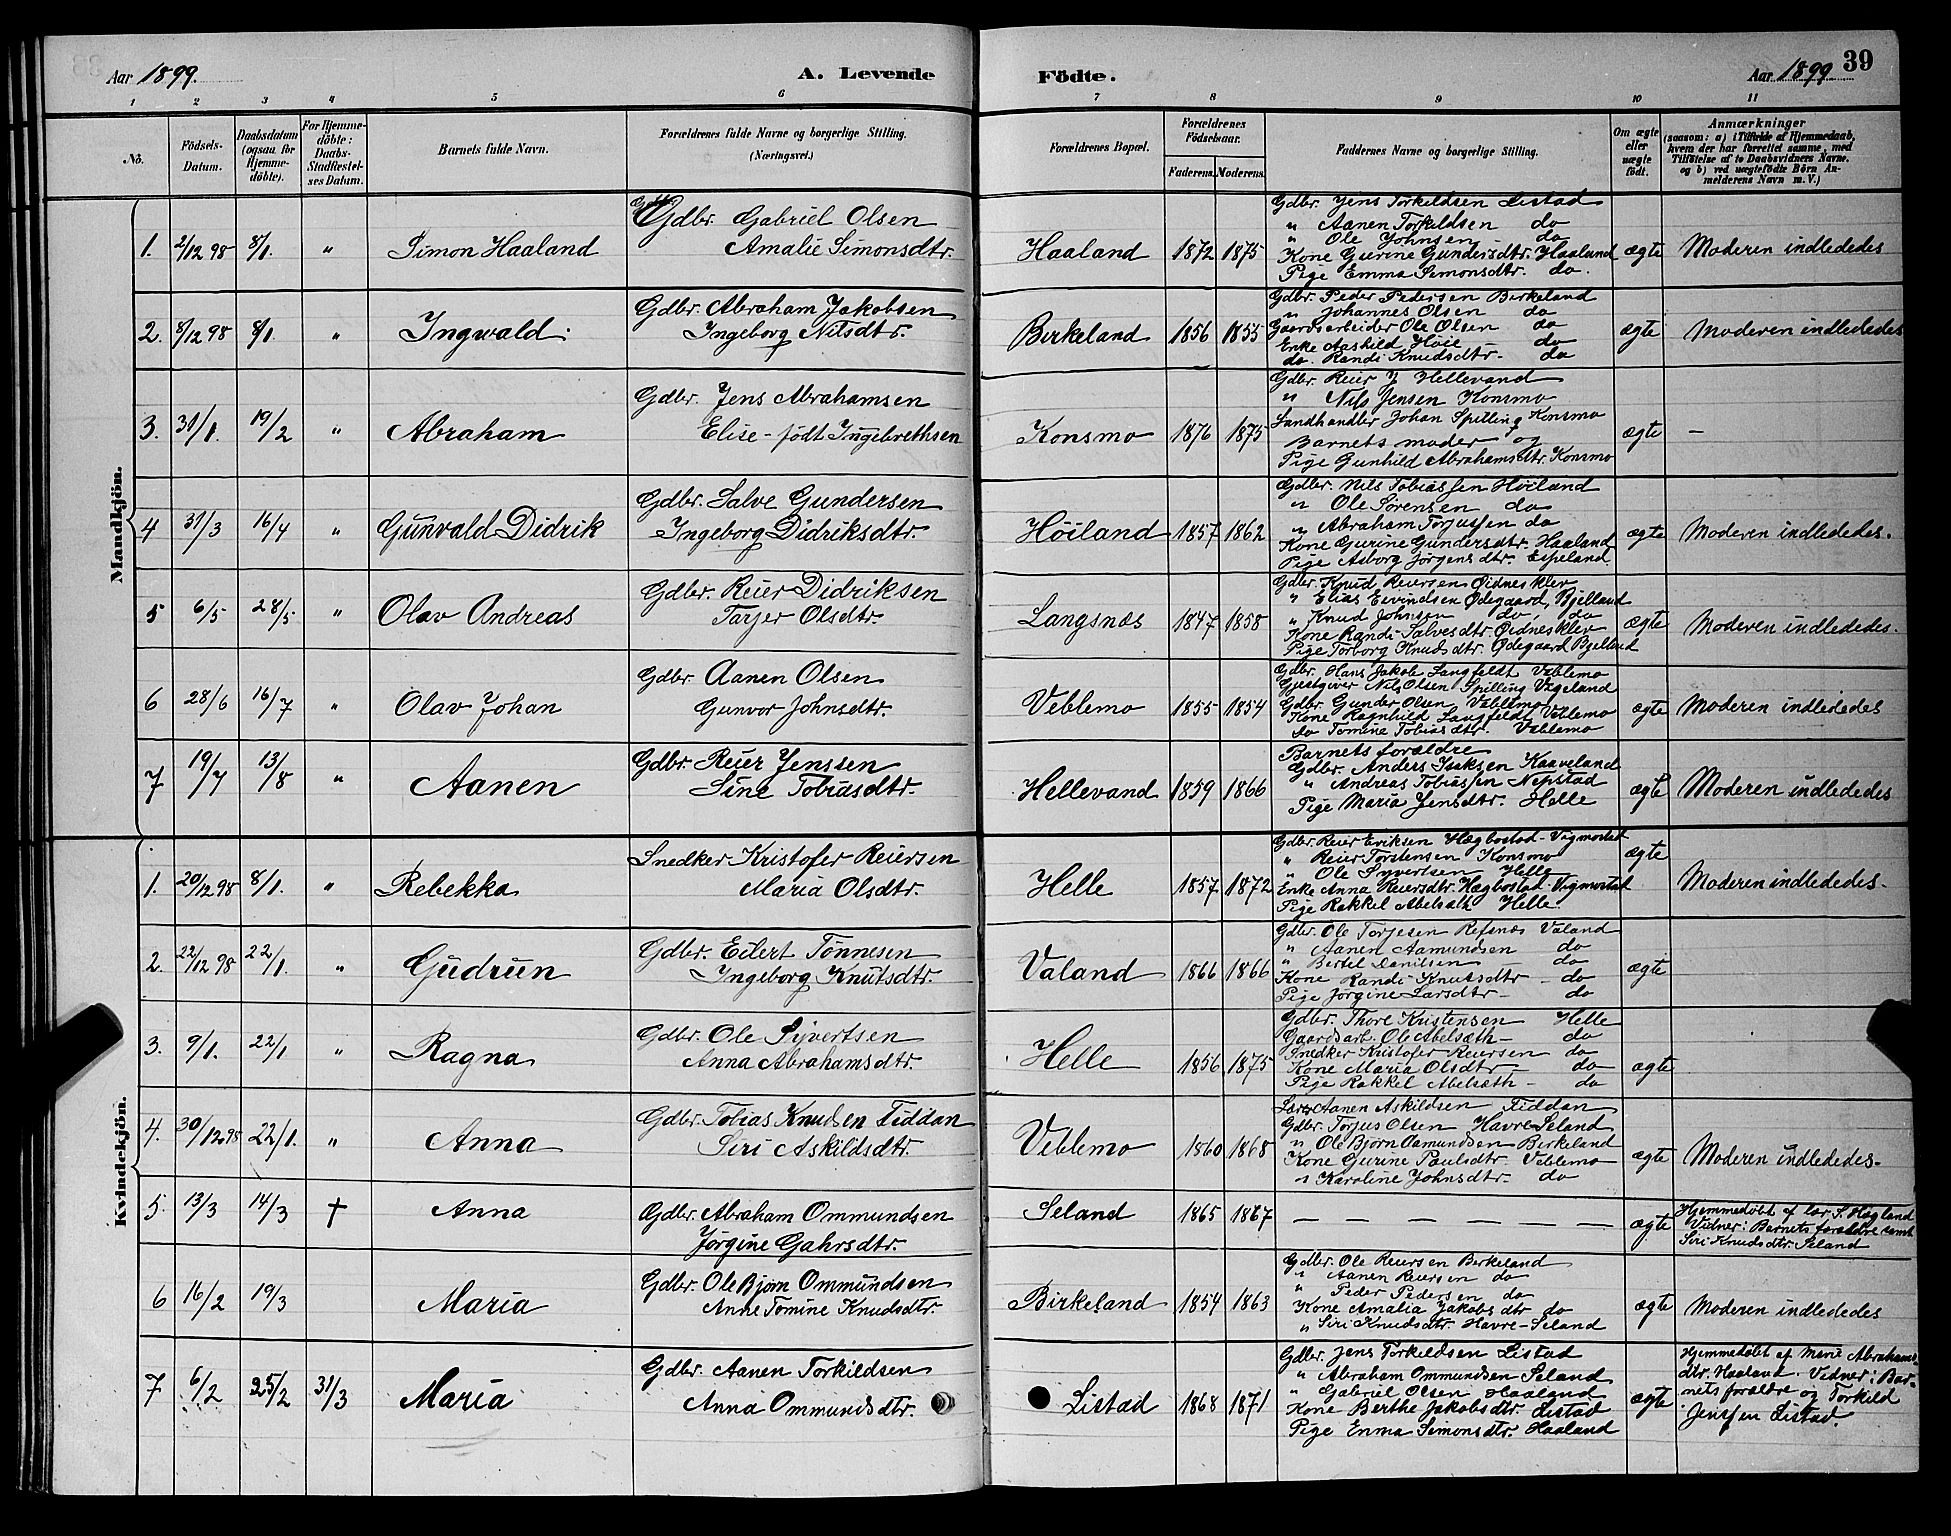 Aar 1899. A. Levende Födte. Aar 1899 39
1 2 3 4 5 6 7 8 9 10 11
No. Födsels-Datum. Daabsdatum (ogsaa for Hjemme-döbte). For Hjemme-döbte: Daabs-Stadfæstel-ses Datum. Barnets fulde Navn. Forældrenes fulde Navne og borgerlige Stilling. (Næringsvei.) Forældrenes Bopæl. Forældrenes Födselsaar. Faderens. Moderens. Faddernes Navne og borgerlige Stilling. Om ægte eller uægte födt. Anmærkninger (saasom: a) i Tilfælde af Hjemmedaab, hvem der har forrettet samme, med Tilföielse af to Daabsvidners Navne. og b) ved uægtefödte Börn An-melderens Navn m. V.)
Mandkjön.
1. 2/12 98 8/1. " Simon Haaland
Gdbr. Gabriel Olsen
Amalie Simonsdtr.
Haaland 1872 1875
Gdbr. Jens Torkildsen Listad
" Aanen Torkildsen do
" Ole Johnsen do
Kone Gurine Gundersdtr. Haaland
Pige Emma Simonsdtr. do.
ægte Moderen indlededes
2. 8/12 98 8/1. " Ingwald
Gdbr. Abraham Jakobsen
Ingeborg Nilsdtr.
Birkeland 1856 1855
Gdbr. Peder Pedersen Birkeland
" Johannes Olsen do
Gaardsarbeider Ole Olsen do
Enke Aashild Høie - do
do. Randi Knudsdtr - do
ægte Moderen indlededes
3. 31/1. 19/2 " Abraham
Gdbr. Jens Abrahamsen
Elise - født Ingebrethsen
Konsmo 1876 1875
Gdbr. Reier J Hellevand
" Nils Jensen Konsmo
Landhandler Johan Spilling Konsmo
Barnets moder og
Pige Gunhild Abrahamsdtr. Konsmo
ægte -
4 31/3 16/4 " Gunvald Didrik
Gdbr. Salve Gundersen
Ingeborg Didriksdtr.
Höiland 1857 1862
Gdbr. Nils Tobiassen Höiland
" Ole Sörensen do
" Abraham Torjussen do
Kone Gurine Gundersdtr. Haaland
Pige Asborg Jörgensdtr. Espeland
ægte Moderen indlededes.
5 6/5 28/5 " Olav Andreas
Gdbr. Reier Didriksen
Tarjer Olsdtr.
Langsnæs 1847 1858
Gdbr. Knud Reiersen Øidnesklev
" Elias Eivindsen Ødegaard, Bjelland
" Knud Johnsen do, do
Kone Randi Salvesdtr. Øidnesklev
Pige Torborg Knudsdtr. Ødegaard Bjelland
ægte Moderen indlededes.
6 28/6 16/7 " Olav Johan
Gdbr. Aanen Olsen
Gunvor Johnsdtr.
Veblemo 1855 1854
Gdbr. Hans Jakob Langfeldt Veblemo
Gjestgiver Nils Olsen Spilling Vigeland
Gdbr. Gunder Olsen Veblemo
Kone Ragnhild Langfeldt Veblemo
do Tomine Tobiasdtr. Veblemo
ægte Moderen indlededes
7 19/7 13/8 " Aanen
Gdbr. Reier Jenssen
Sine Tobiasdtr.
Hellevand 1859 1866
Barnets forældre
Gdbr. Anders Isaksen Kaaveland
" Andreas Tobiassen Nepstad
Pige Maria Jensdtr. Helle
ægte Moderen indlededes
Kvindekjön.
1. 20/12 98 8/1. " Rebekka
Snedker Kristofer Reiersen
Maria Olsdtr.
Helle 1857 1872
Gdbr. Reier Eriksen Hægbostad - Vigmostad
" Reier Torstensen Konsmo
" Ole Syvertsen Helle
Enke Anna Reiersdtr. Hægbostad - Vigmostad
Pige Rakkel Abelsæth Helle
ægte Moderen indlededes.
2. 22/12 98 22/1. " Gudrun
Gdbr. Eilert Tønnesen
Ingeborg Knutsdtr.
Valand 1866 1866
Gdbr. Ole Torjesen Refsnes Valand
" Aanen Aamundsen do
" Bertel Danilsen do
Kone Randi Knutsdtr - do
Pige Jørgine Larsdtr - do
ægte
3. 9/1. 22/1 " Ragna
Gdbr. Ole Syvertsen
Anna Abrahamsdtr.
Helle 1856 1875
Gdbr. Thore Kristensen Helle
Gaardsarb. Ole Abelsæth - do
Snedker Kristofer Reiersen do
Kone Maria Olsdtr - do
Pige Rakkel Abelsæth - do
ægte
4. 30/12 98 22/1. " Anna
Gdbr. Tobias Knudsen Fiddan
Siri Askildsdtr.
Veblemo 1860 1868
Lærer Aanen Askildsen Fiddan
Gdbr. Torjus Olsen Havre Seland
" Ole Bjørn Aamundsen Birkeland
Kone Gurine Paulsdtr. Veblemo
" Karoline Johnsdtr - do
ægte Moderen indlededes.
5. 13/3 14/3 † Anna
Gdbr. Abraham Ommundsen
Jørgine Gahrsdtr.
Seland 1865 1867
— — — — — — — —
ægte Hjemmedøbt af lær. S. Høgland
Vidner: Barnets forældre samt
Siri Knudsdtr. Seland
6 16/2 19/3 Maria
Gdbr. Ole Bjørn Ommundsen
Anne Tomine Knudsdtr.
Birkeland 1854 1863
Gdbr. Ole Reiersen Birkeland
" Aanen Reiersen do
" Peder Pedersen do
Kone Amalia Jakobsdtr do
" Siri Knudsdtr. Havre-Seland
ægte Moderen indlededes
7 6/2 25/2 31/3 Maria
Gdbr. Aanen Torkildsen
Anna Ommundsdtr.
Listad 1868 1871
Gdbr. Jens Torkildsen Listad
" Abraham Ommundsen Seland
" Gabriel Olsen Haaland
Kone Berthe Jakobsdtr. Listad
Pige Emma Simonsdtr. Haaland
ægte Hjemmedøbt af Marie Abrahams-
dtr. Haaland. Vidner: Bar-
nets forældre og Torkild
Jenssen Listad.